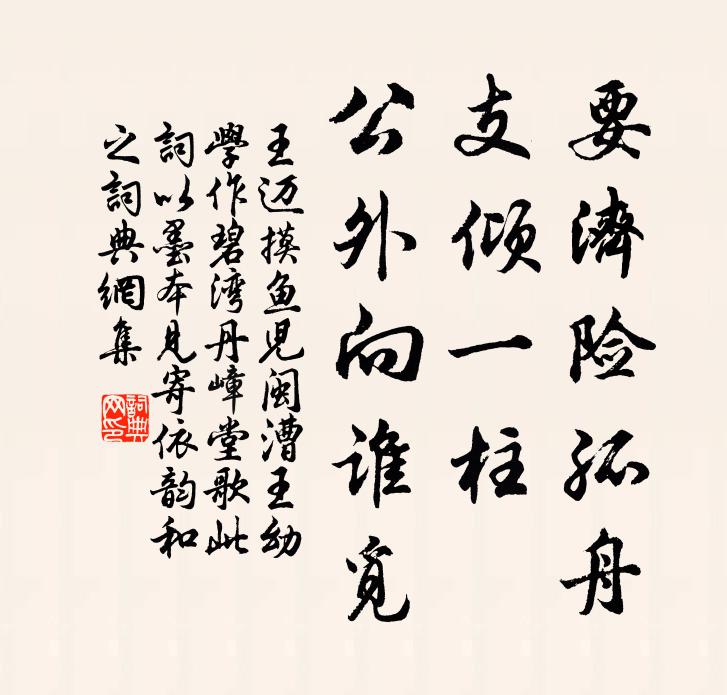 要濟险孤舟
支倾一柱
公外向谁觅
王迈摸鱼児闽漕王幼
學作碧湾丹嶂堂歌此
詞以墨本見寄依韵和
之詞典網集
詞典网印